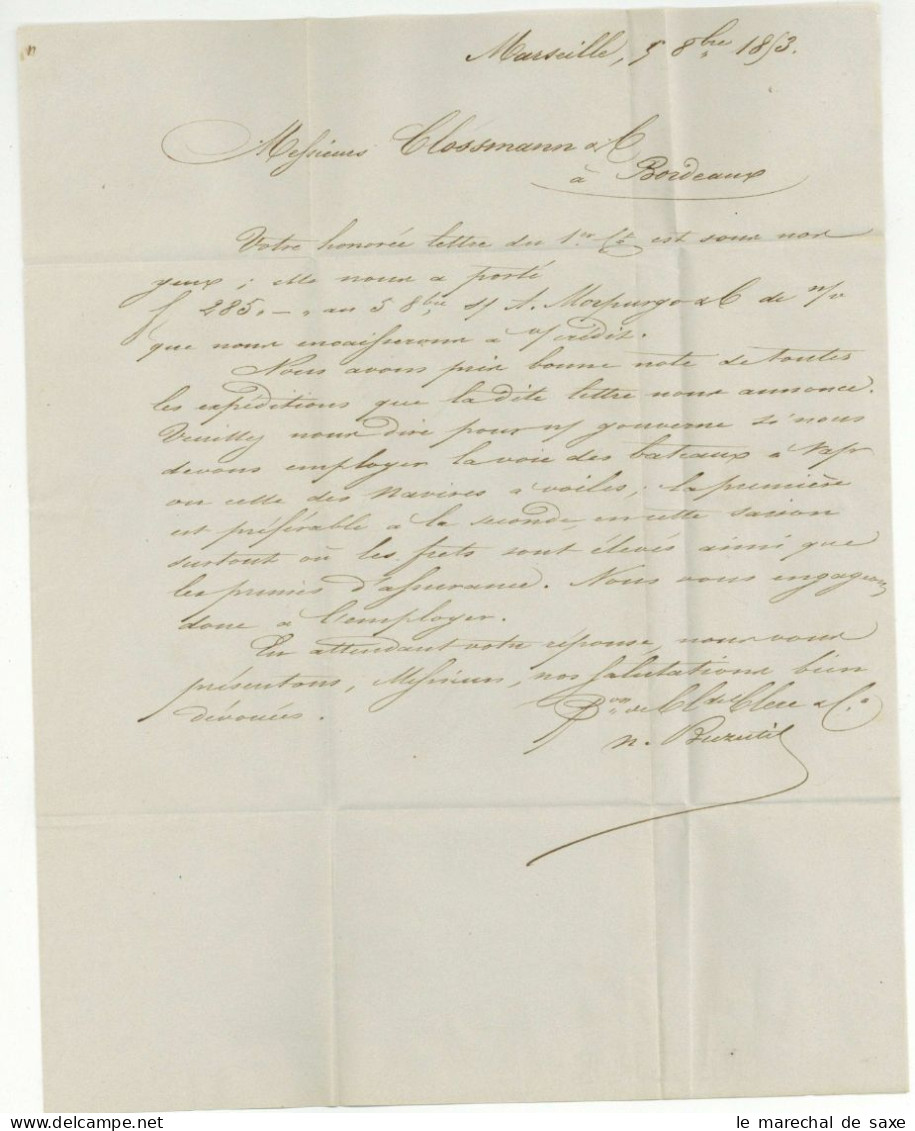 Marseille, 5 8bre 1853.
Messieurs Clossmann & C
à Bordeaux
Votre honorée lettre du 1er Ct est sous nos
yeux; elle nous a porté
f 285.-. au 5 8bre s/ A. Morpurgo & C de n/v
que nous encaisserons à v/ crédit.
Nous avons pris bonne note de toutes
les expéditions que la dite lettre nous annonce.
Veuillez nous dire pour n/ gouverne si nous
devons employer la voie des bateaux à vapr
ou celle des navires à voiles; la première
est préférable à la seconde en cette saison
surtout où les frets sont élevés ainsi que
les primes d'assurance. Nous vous engageons
donc à l'employer.
En attendant votre réponse, nous vous
présentons, Messieurs, nos salutations bien
dévouées.
Pon de Cl de Clerc & C.
n.
le marechal de saxe